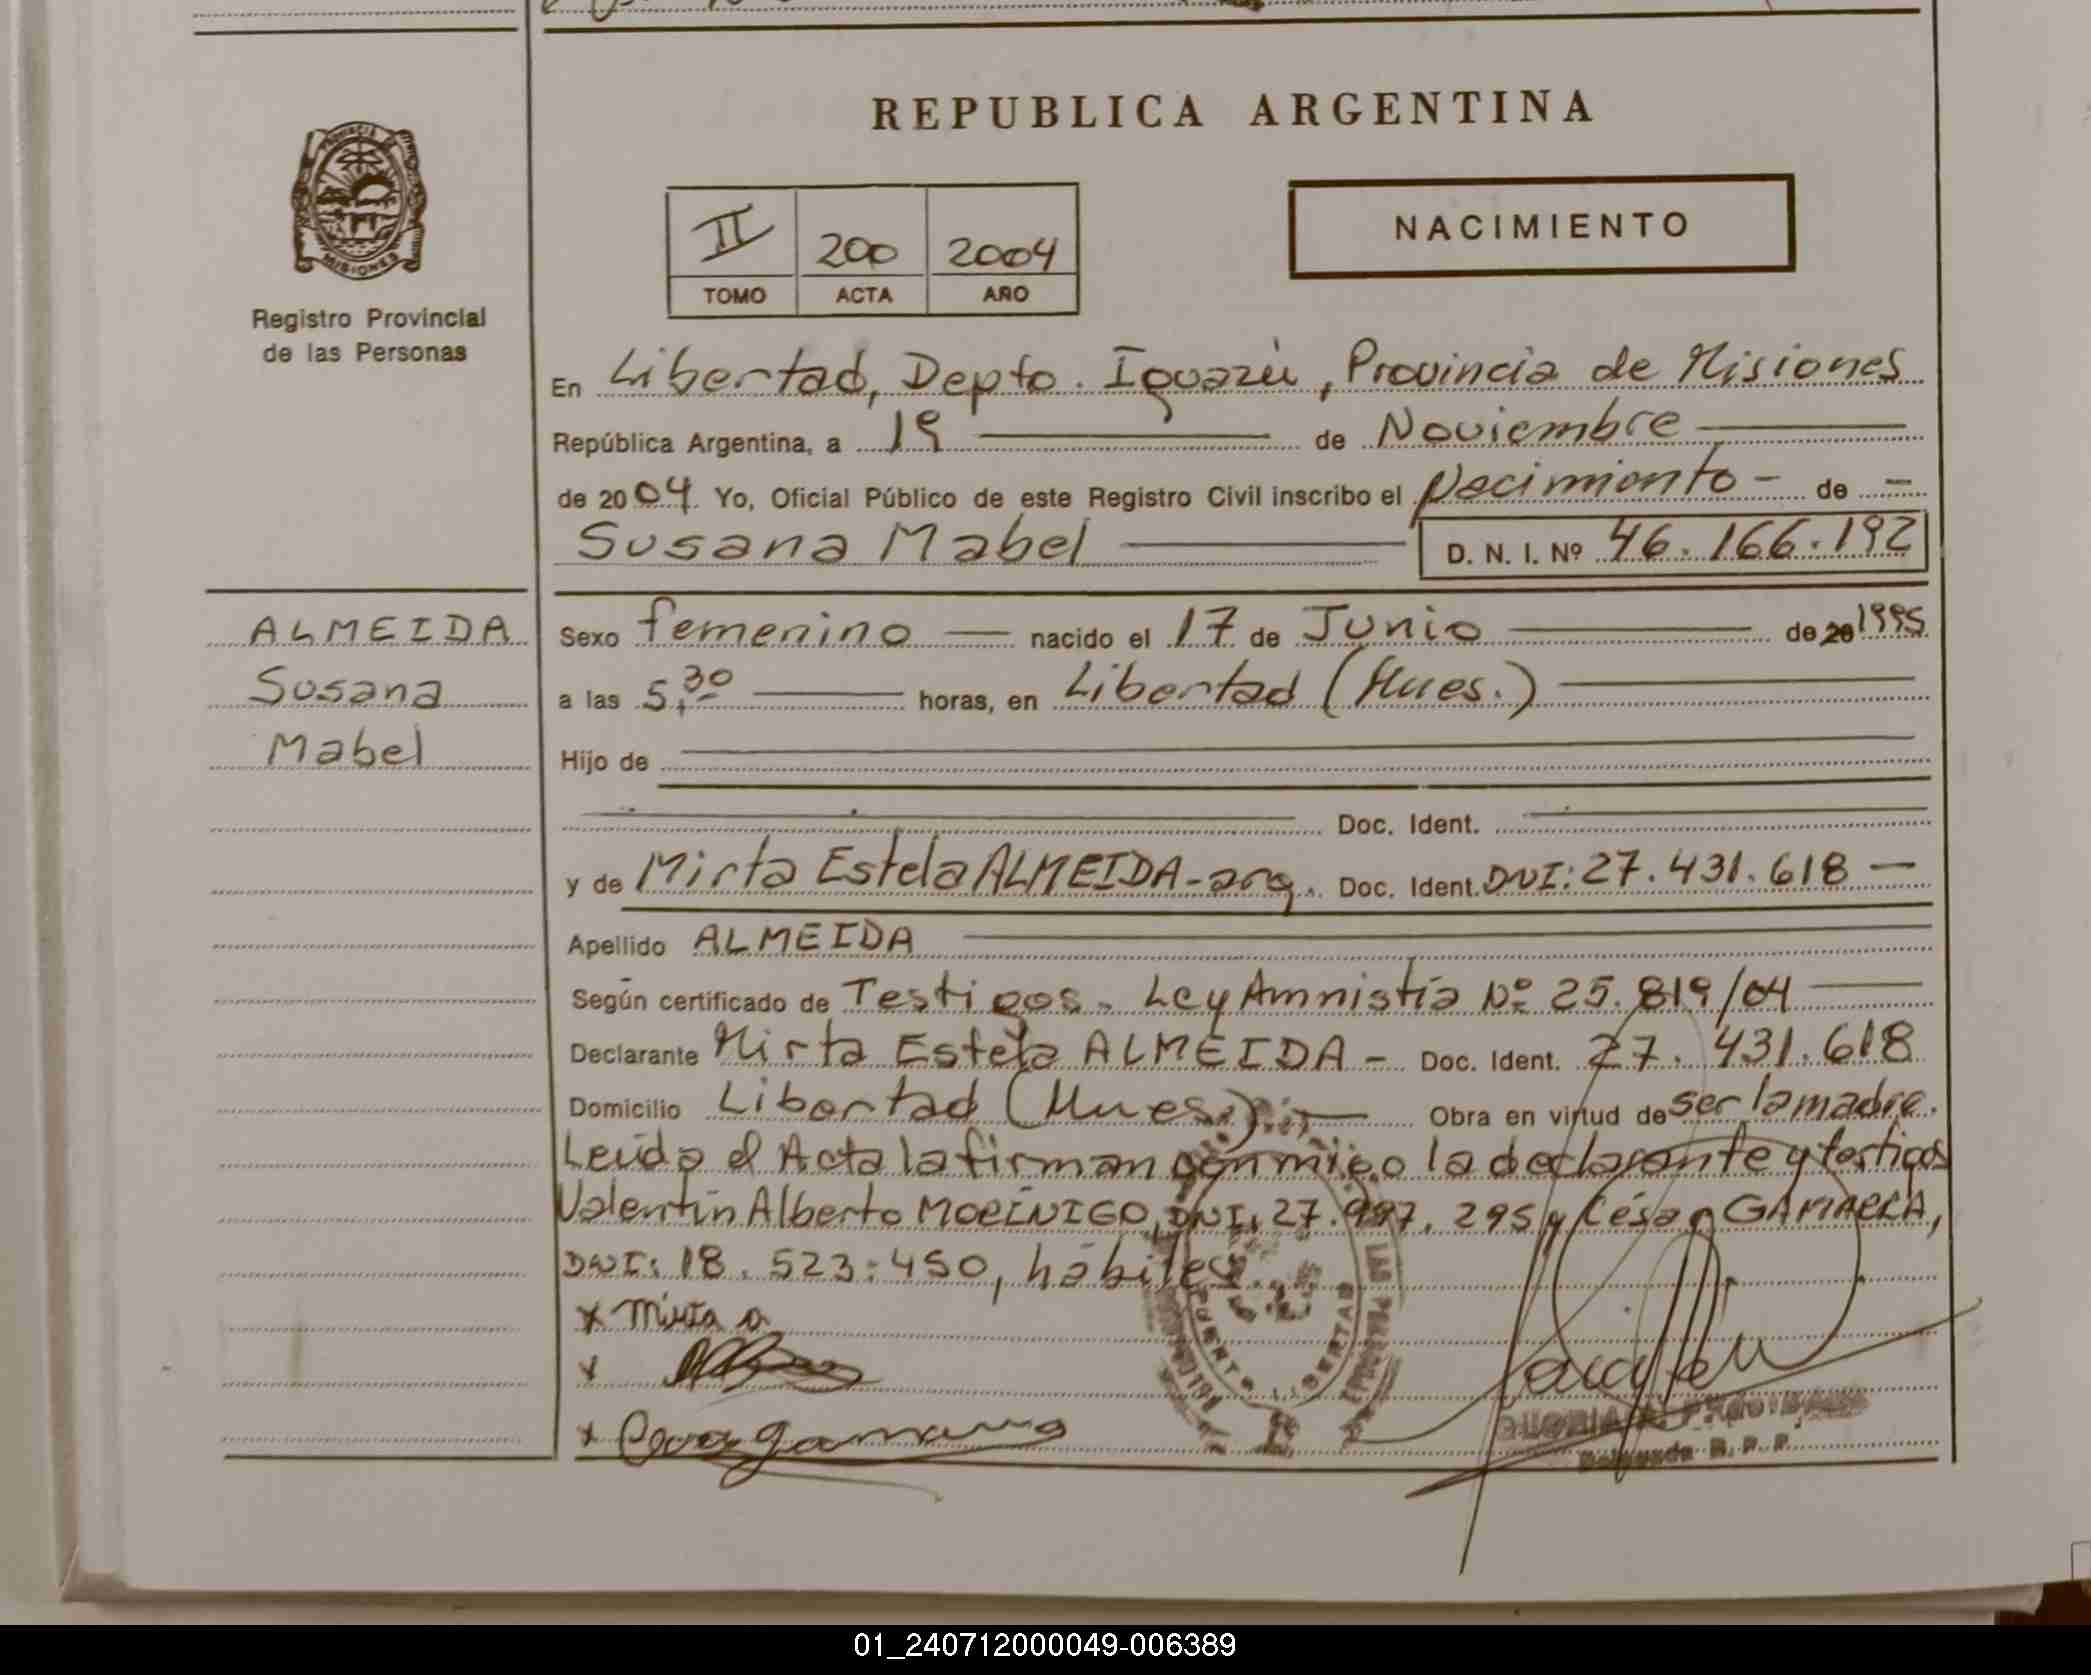 REPUBLICA ARGENTINA
PROVINCIA DE
MISIONES
Registro Provincial
de las Personas
II 200 2004
TOMO ACTA AÑO
NACIMIENTO
En Libertad, Depto. Iguazú, Provincia de Misiones
República Argentina, a 19 de Noviembre
de 2004 Yo, Oficial Público de este Registro Civil inscribo el Nacimiento - de -
Susana Mabel D. N. I. Nº 46.166.192
ALMEIDA
Susana
Mabel
Sexo femenino nacido el 17 de Junio de 20 1995
a las 5,30 horas, en Libertad (Mnes.)
Hijo de
Doc. Ident.
y de Mirta Estela ALMEIDA - arg. Doc. Ident. DNI: 27.431.618 -
Apellido ALMEIDA
Según certificado de Testigos. Ley Amnistía Nº 25.819/04
Declarante Mirta Estela ALMEIDA - Doc. Ident. 27.431.618
Domicilio Libertad (Mnes.) Obra en virtud de ser la madre.
Leída el Acta la firman conmigo la declarante y testigos
Valentín Alberto MORÍNIGO, DNI: 27.997.295 y César GAMARRA,
DNI: 18.523.450, hábiles.
x Mirta a
x
x Cesar gamarra
PUERTO LIBERTAD
LAS PERSONAS
Delegada R. P. P.
01_240712000049-006389